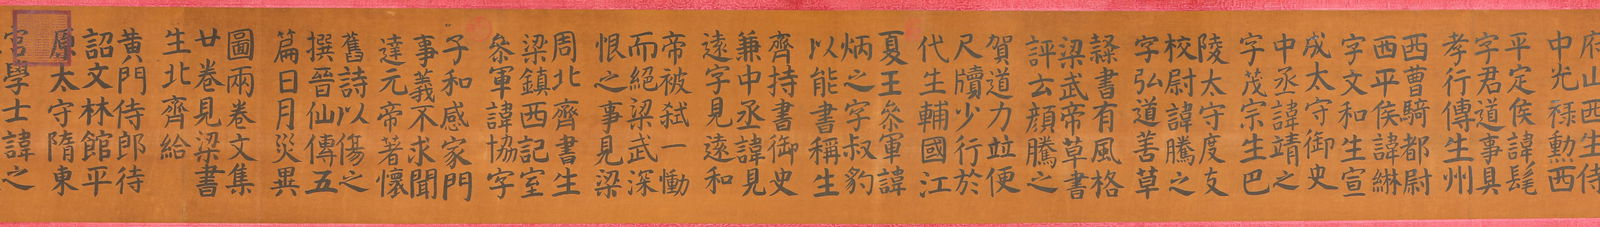 府山西生侍
中光祿勳西
平定侯諱髦
字君道事具
孝行傳生州
西曹騎都尉
西平侯諱綝
字文和生宣
成太守御史
中丞諱靖之
字茂宗生巴
陵太守度支
校尉諱騰之
字弘道善草
隸書有風格
梁武帝草書
評云顏騰之
賀道力竝便
尺牘少行於
代生輔國江
夏王叅軍諱
炳之字叔豹
以能書稱生
齊持書御史
兼中丞諱見
遠字見遠和
帝被弒一慟
而絕梁武深
恨之事見梁
周北齊書生
梁鎮西記室
叅軍諱協字
子和感家門
事義不求聞
達元帝著懷
舊詩以傷之
撰晉仙傳五
篇日月災異
圖兩卷文集
廿卷見梁書
生北齊給
黃門侍郎待
詔文林館平
原太守隋東
宮學士諱之